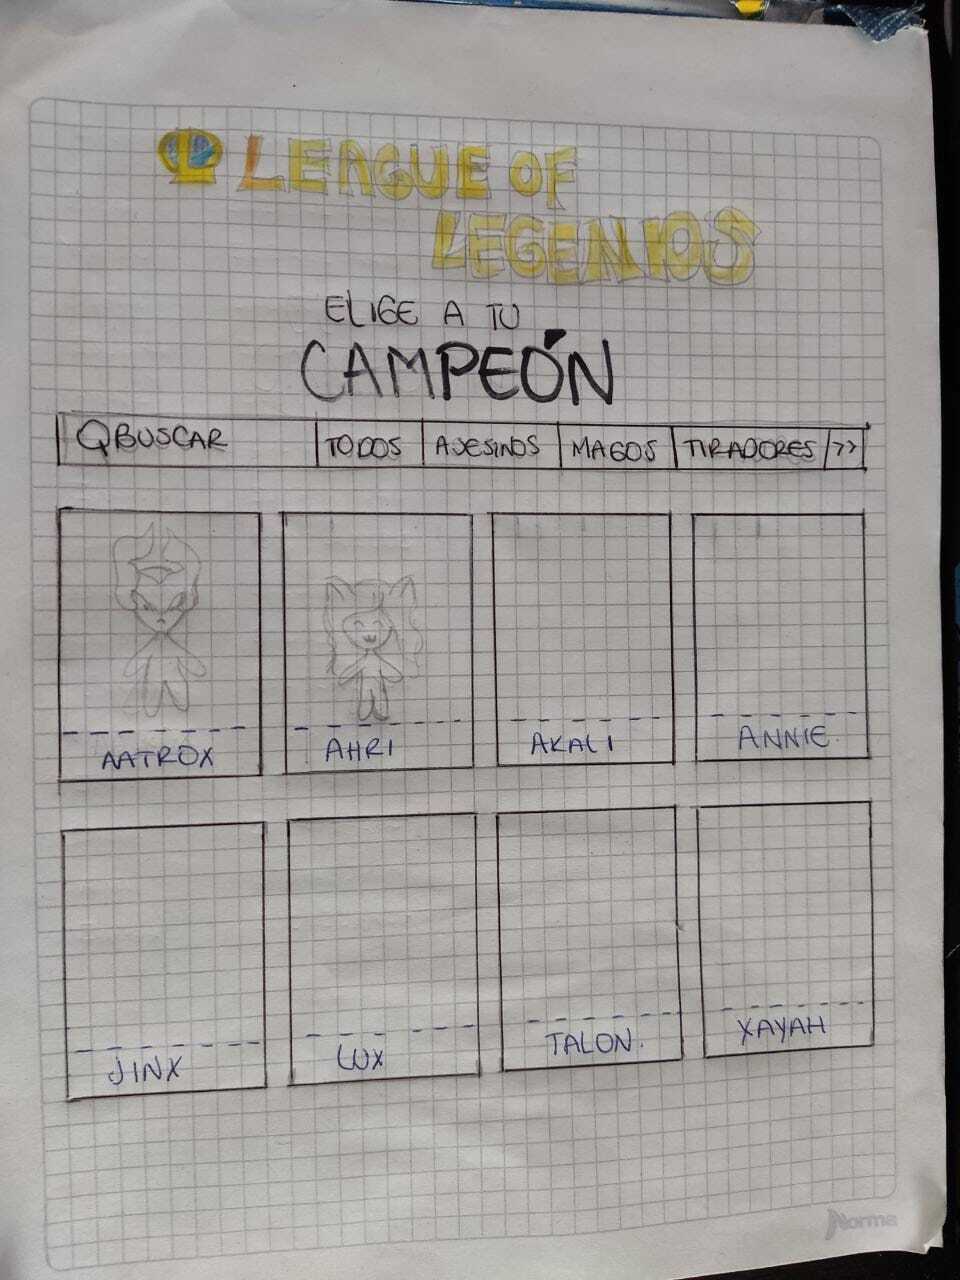 LEAGUE OF
LEGENDS
ELIGE A TU
CAMPEÓN
BUSCAR TODOS ASESINOS MAGOS TIRADORES >>
AATROX AHRI AKALI ANNIE.
JINX LUX TALON. XAYAH
Norma